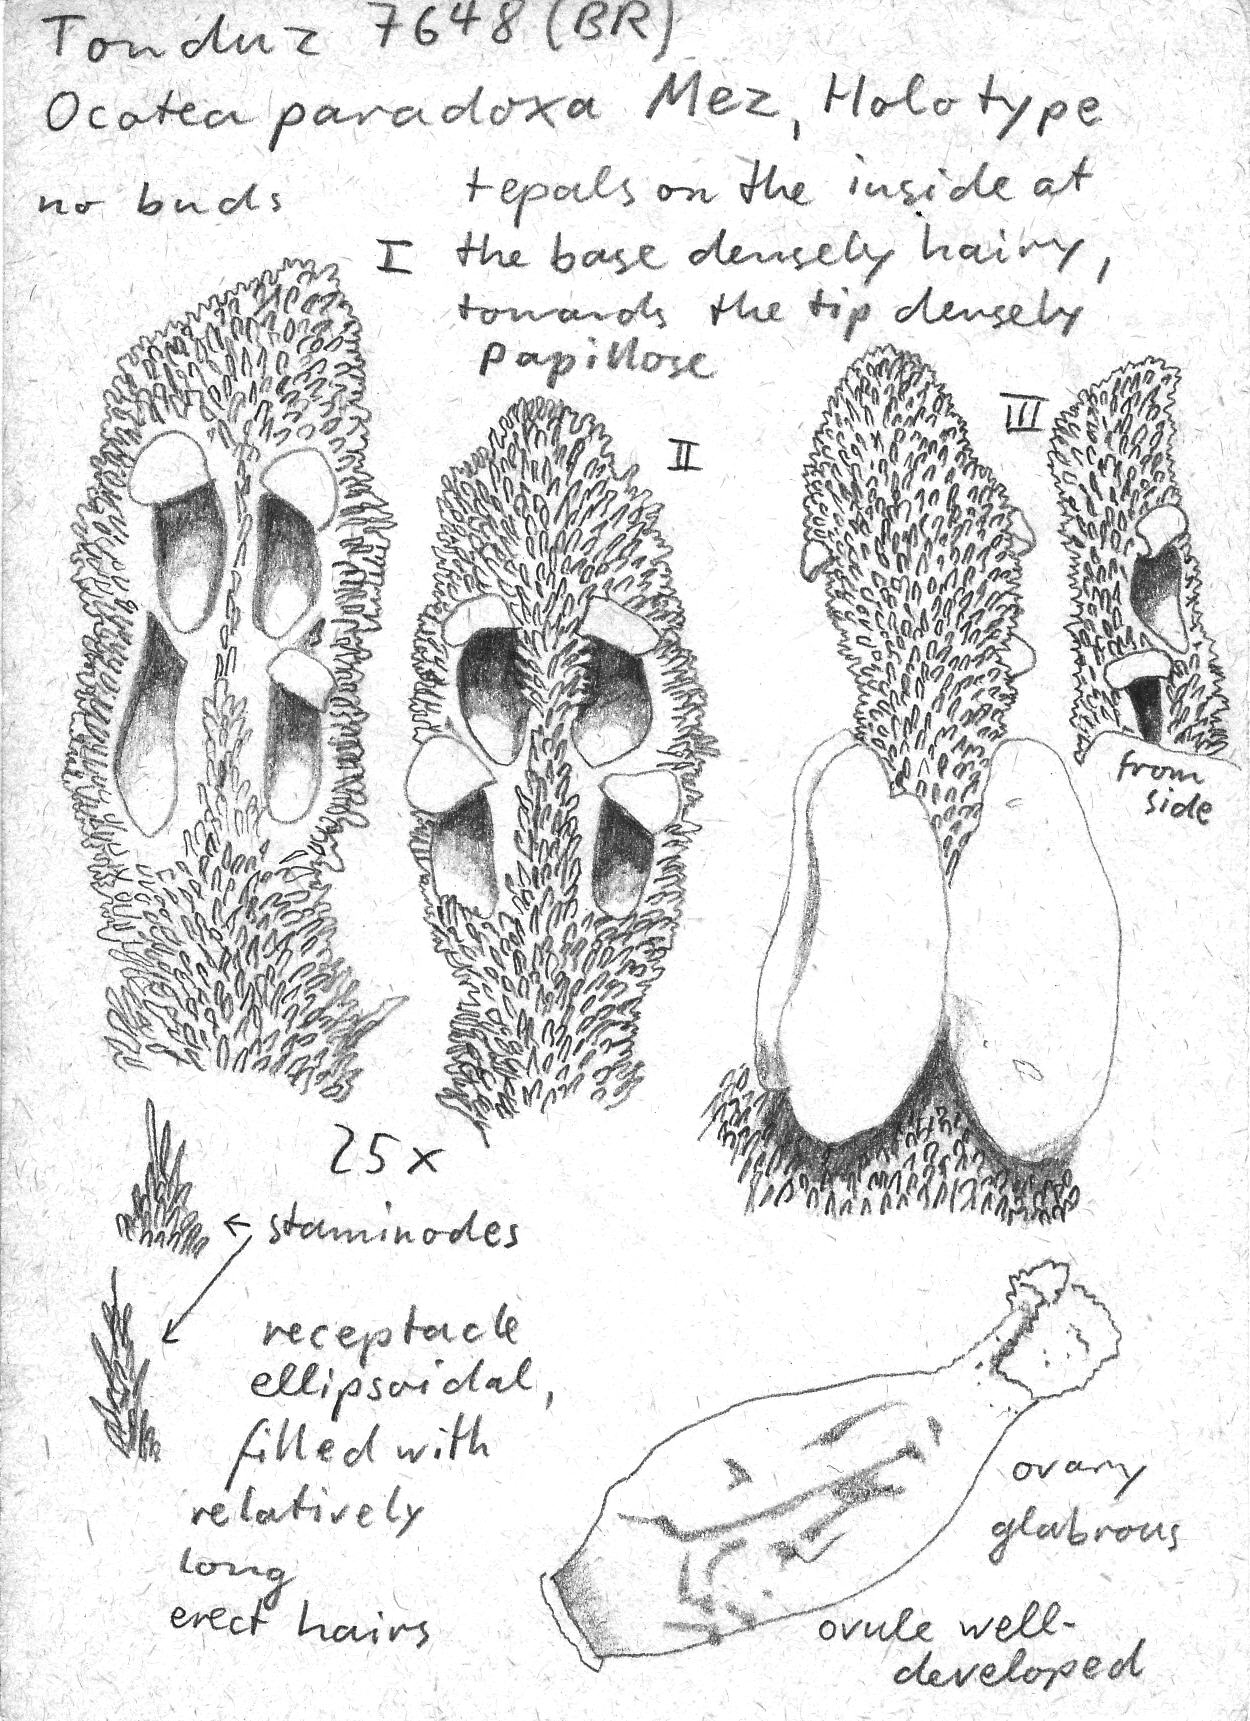 Tonduz 7648 (BR)
Ocotea paradoxa Mez, Holotype
no buds
tepals on the inside at
the base densely hairy,
towards the tip densely
papillose
I
II
III
from
side
25x
staminodes
receptacle
ellipsoidal,
filled with
relatively
long
erect hairs
ovary
glabrous
ovule well-
developed